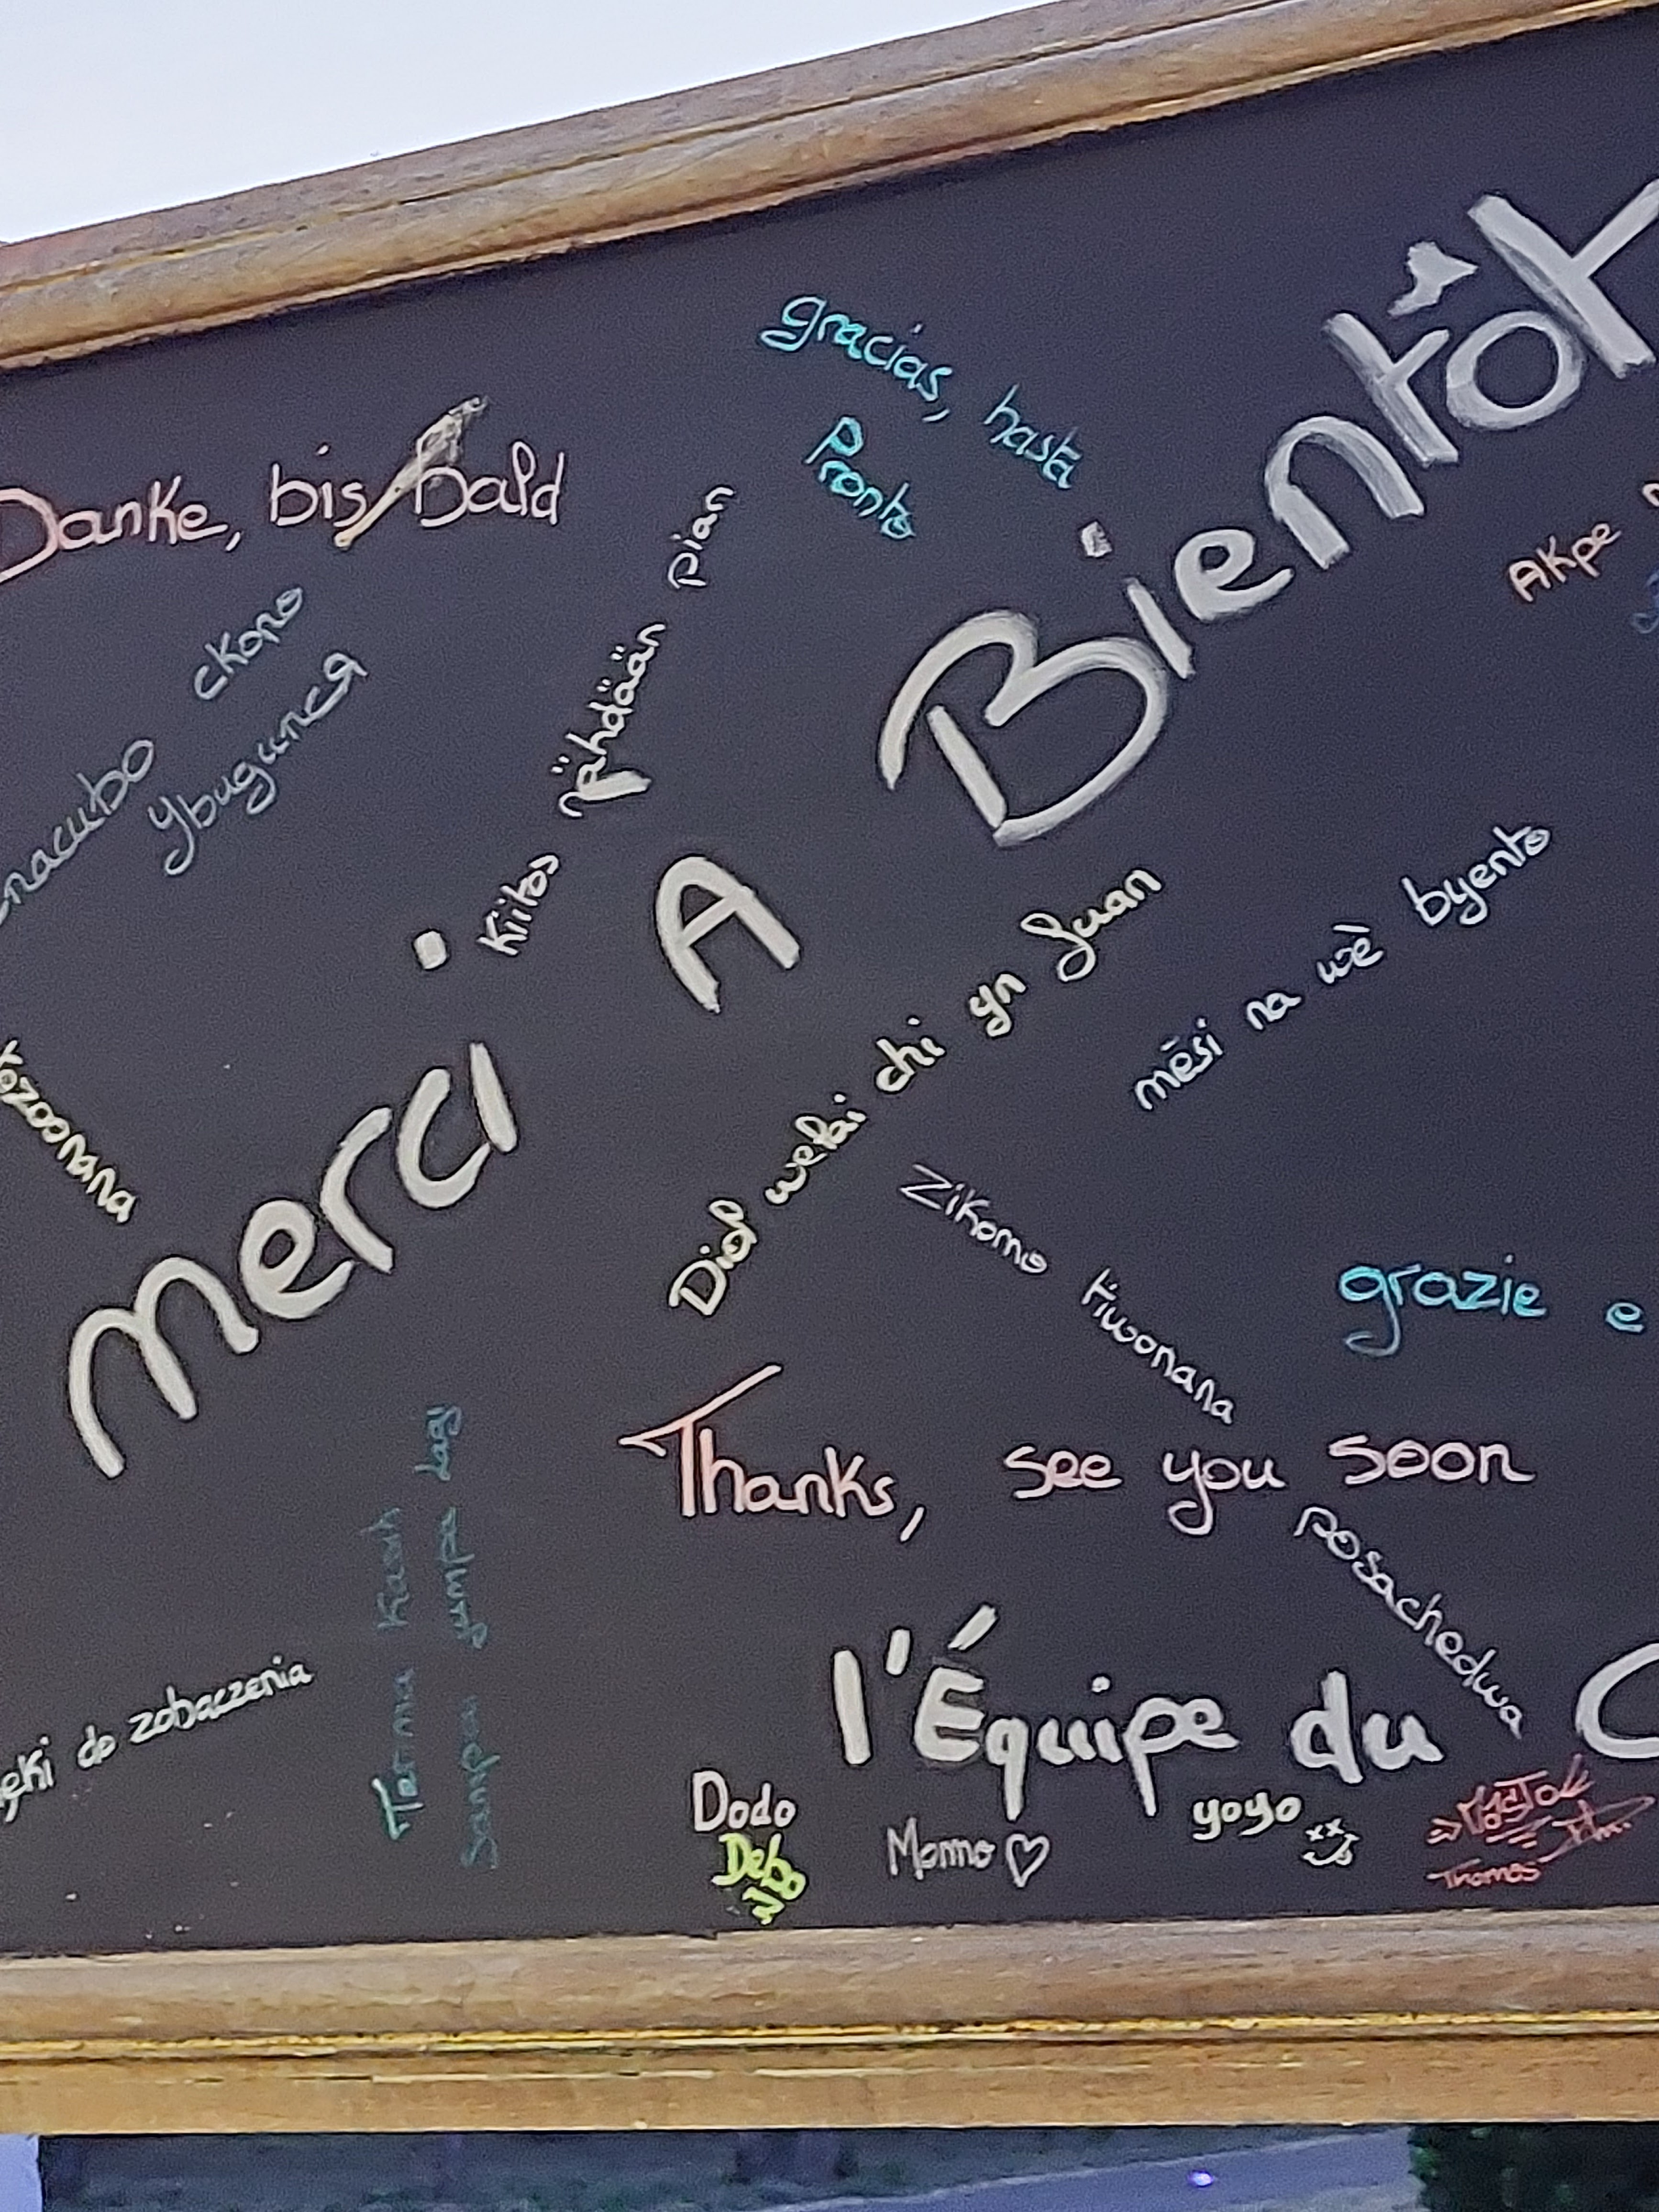 gracias, hasta
Pronto
Danke, bis bald
скоро
увидимся
Kiitos nähdään pian
Merci A Bientôt
Akpe
Diolch welai chi yn fuan
mèsi na wè byento
Zikomo tiwonana posachedwa
grazie e
Thanks, see you soon
Terima Kasih
sampai jumpa lagi
do zobaczenia
l'Équipe du
Dodo
Debo
Momo ♡
yoyo
Thomas